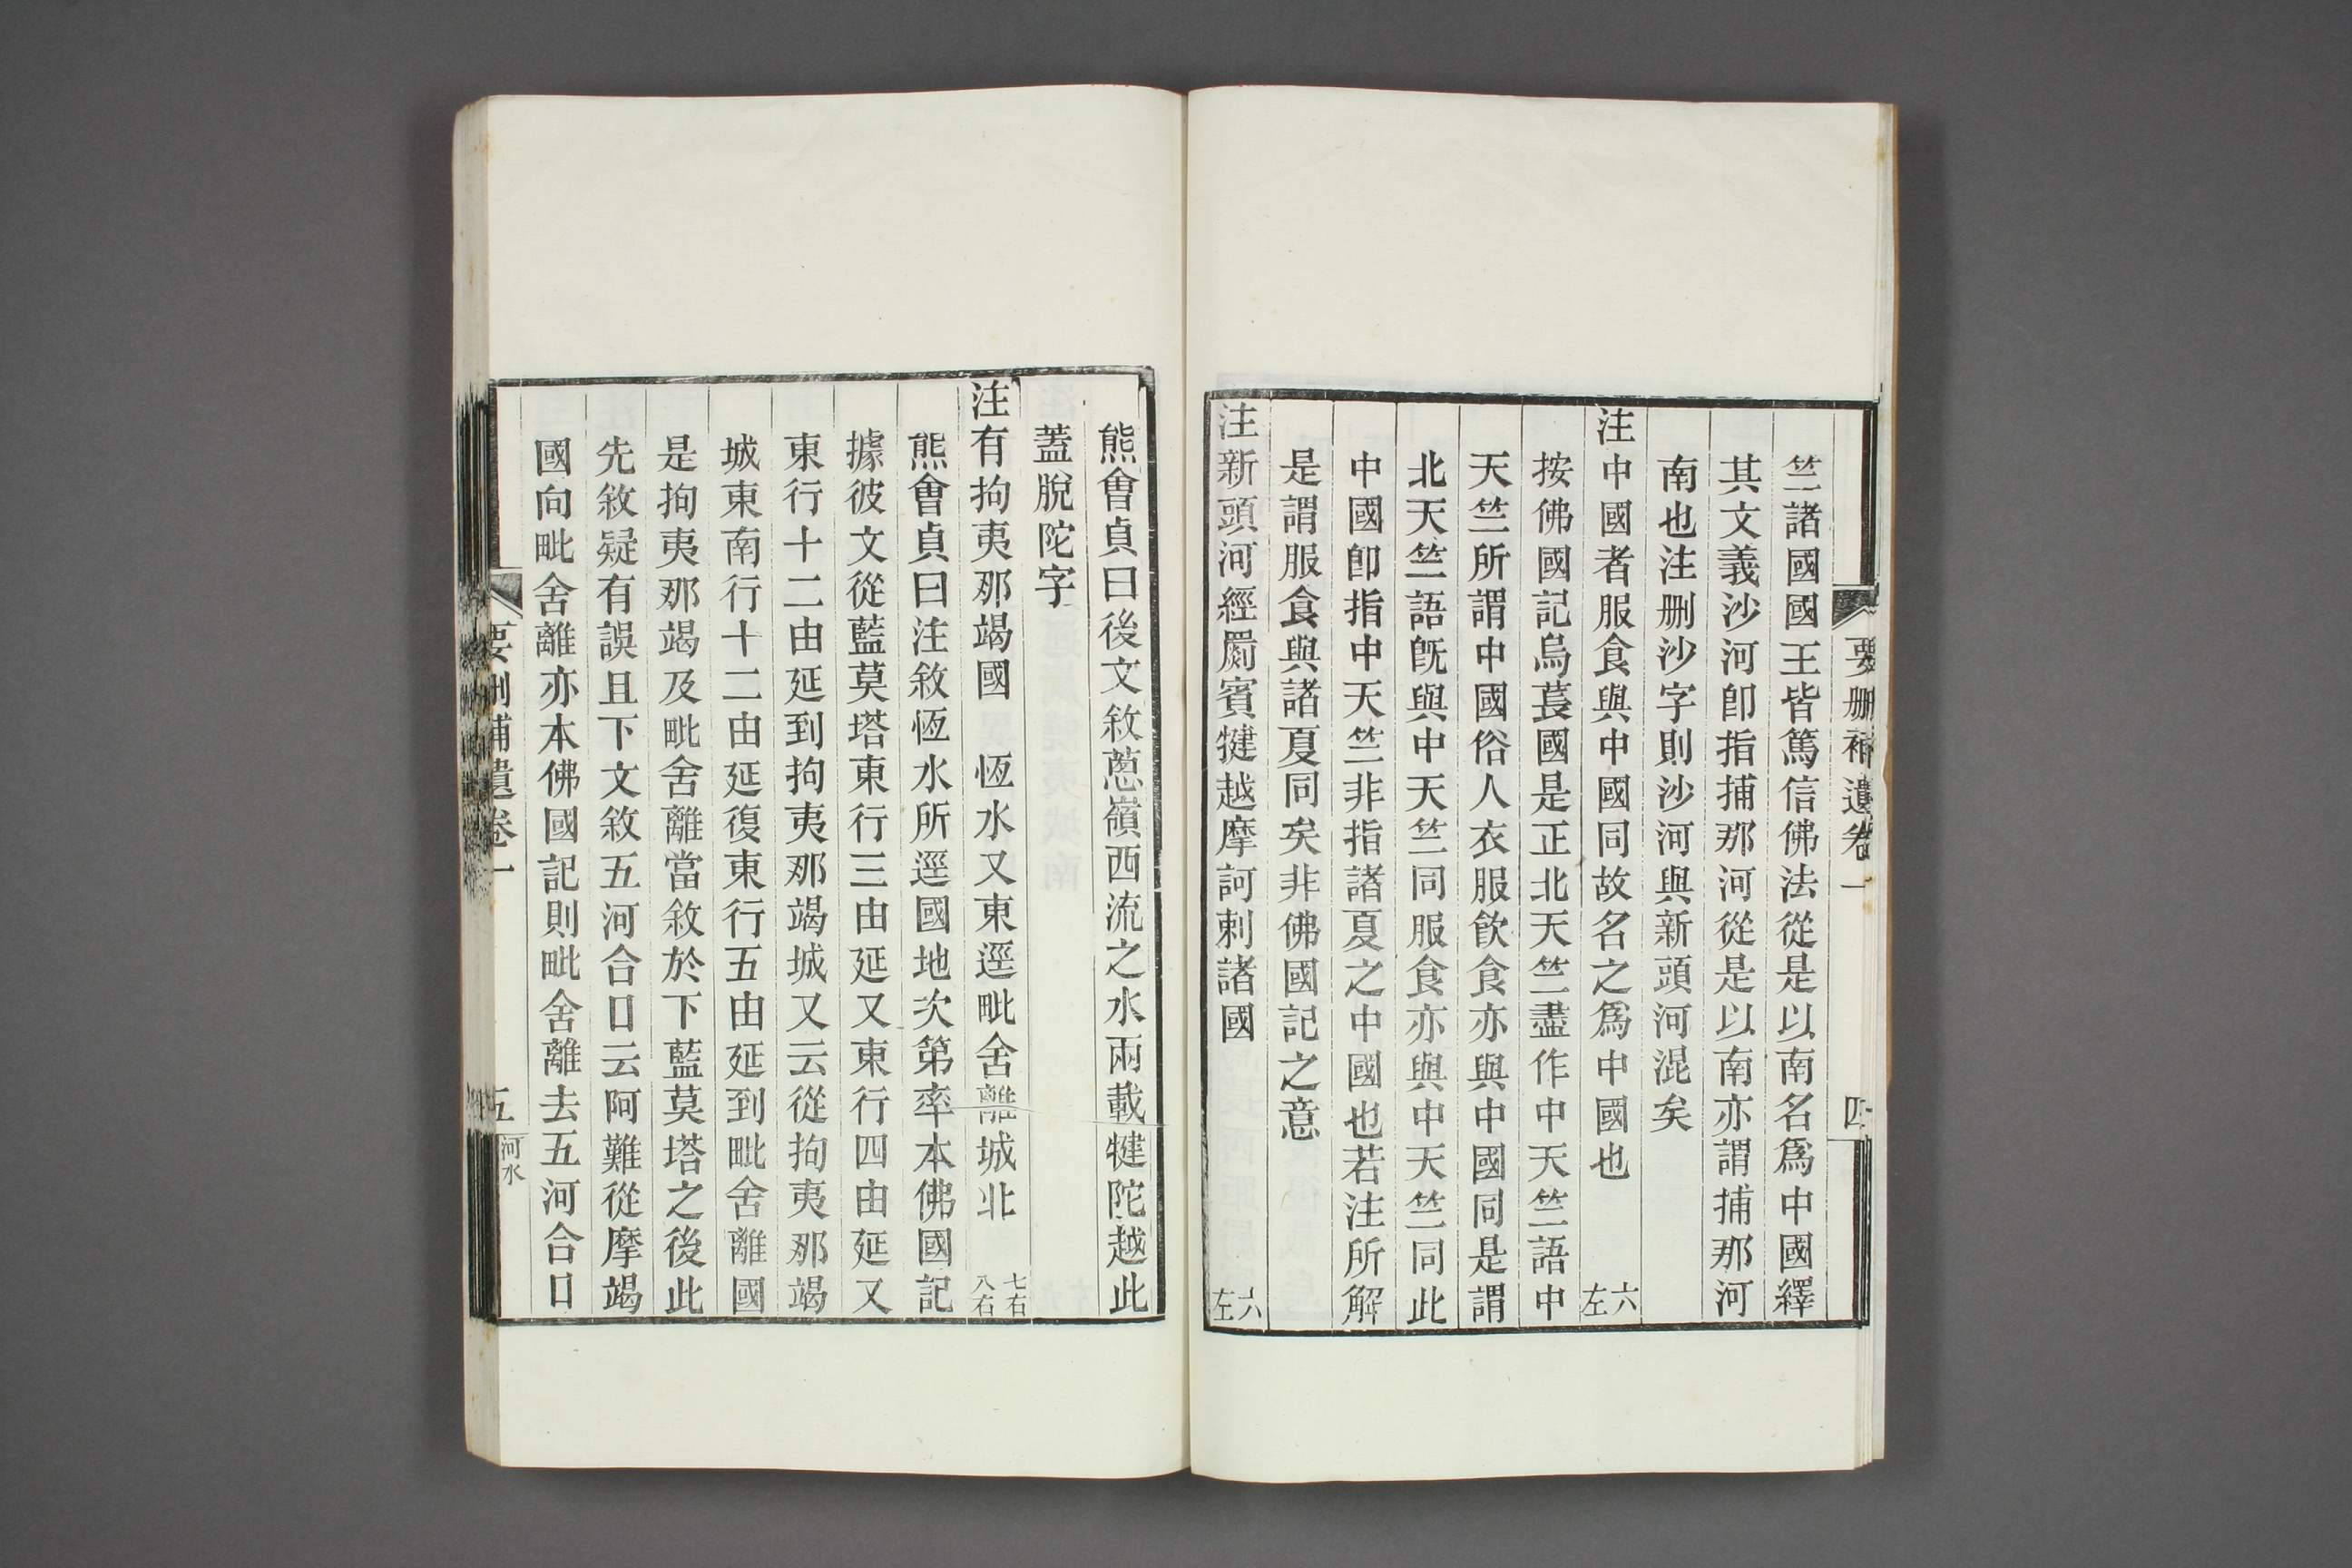 要刪補遺卷一
四
竺諸國國王皆篤信佛法從是以南名爲中國繹
其文義沙河卽指捕那河從是以南亦謂捕那河
南也注刪沙字則沙河與新頭河混矣
注中國者服食與中國同故名之爲中國也
六左
按佛國記烏萇國是正北天竺盡作中天竺語中
天竺所謂中國俗人衣服飮食亦與中國同是謂
北天竺語旣與中天竺同服食亦與中天竺同此
中國卽指中天竺非指諸夏之中國也若注所解
是謂服食與諸夏同矣非佛國記之意
注新頭河經罽賓犍越摩訶剌諸國
六左
熊會貞曰後文敘蔥嶺西流之水兩載犍陀越此
蓋脫陀字
注有拘夷那竭國　恆水又東逕毗舍離城北
七右
八右
熊會貞曰注敘恆水所逕國地次第率本佛國記
據彼文從藍莫塔東行三由延又東行四由延又
東行十二由延到拘夷那竭城又云從拘夷那竭
城東南行十二由延復東行五由延到毗舍離國
是拘夷那竭及毗舍離當敘於下藍莫塔之後此
先敘疑有誤且下文敘五河合口云阿難從摩竭
國向毗舍離亦本佛國記則毗舍離去五河合口
要刪補遺卷一
五
河水